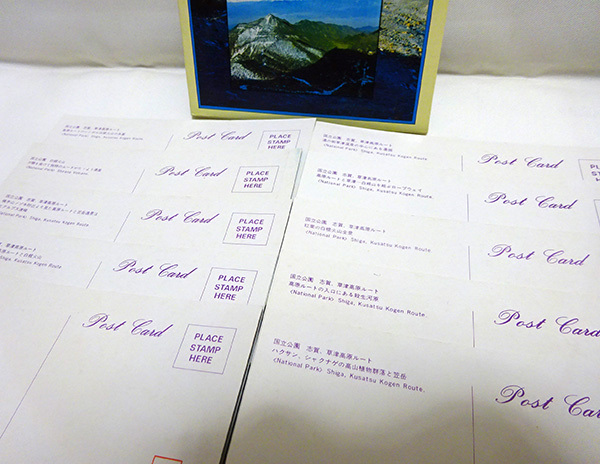 国立公園 志賀、草津高原ルート
(National Park) Shiga, Kusatsu Kogen Route
Post Card
PLACE
STAMP
HERE
国立公園 白根火山
(National Park) Shirane Kazano
Post Card
PLACE
STAMP
HERE
国立公園 志賀、草津高原ルート
(National Park) Shiga, Kusatsu Kogen Route
Post Card
PLACE
STAMP
HERE
草津高原ルート
Shiga, Kusatsu Kogen Route
Post Card
PLACE
STAMP
HERE
Post Card
PLACE
STAMP
HERE
国立公園 志賀、草津高原ルート
(National Park) Shiga, Kusatsu Kogen Route
Post Card
PLACE
STAMP
国立公園 志賀、草津高原ルート
(National Park) Shiga, Kusatsu Kogen Route
Post Card
PLACE
STAMP
国立公園 志賀、草津高原ルート
紅葉の白根火山全景
(National Park) Shiga, Kusatsu Kogen Route.
Post Card
国立公園 志賀、草津高原ルート
高原ルートの入口にある殺生河原
(National Park) Shiga, Kusatsu Kogen Route.
Post Card
国立公園 志賀、草津高原ルート
ハクサン、シャクナゲの高山植物群落と笠岳
(National Park) Shiga, Kusatsu Kogen Route.
Post Card